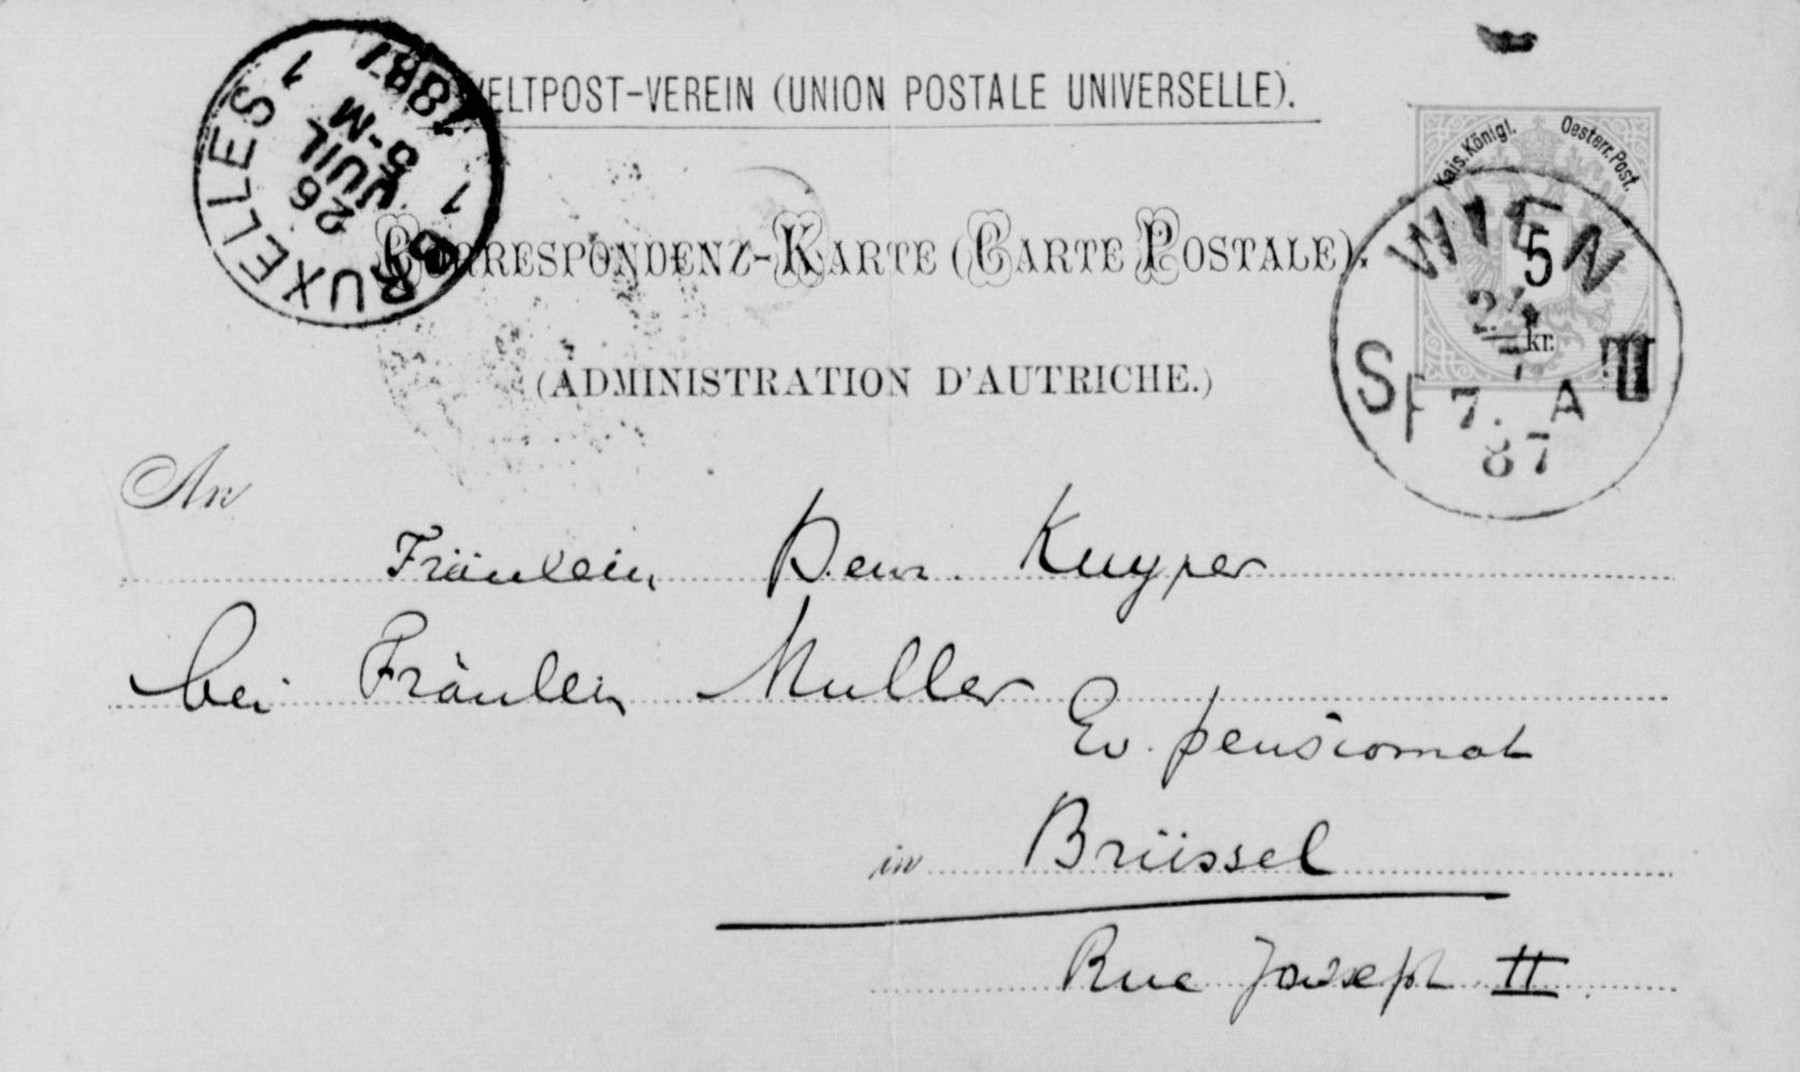 WELTPOST-VEREIN (UNION POSTALE UNIVERSELLE).
BRUXELLES 1
26 JUIL 5-M 1887
1
Kais. Königl. Oesterr. Post.
5 kr.
CORRESPONDENZ-KARTE (CARTE POSTALE).
WIEN
24 7
7. A
87
(ADMINISTRATION D'AUTRICHE.)
An
Fräulein Kuyper
bei Fräulein Muller
Ev. pensionat
in Brüssel
Rue Joseph II